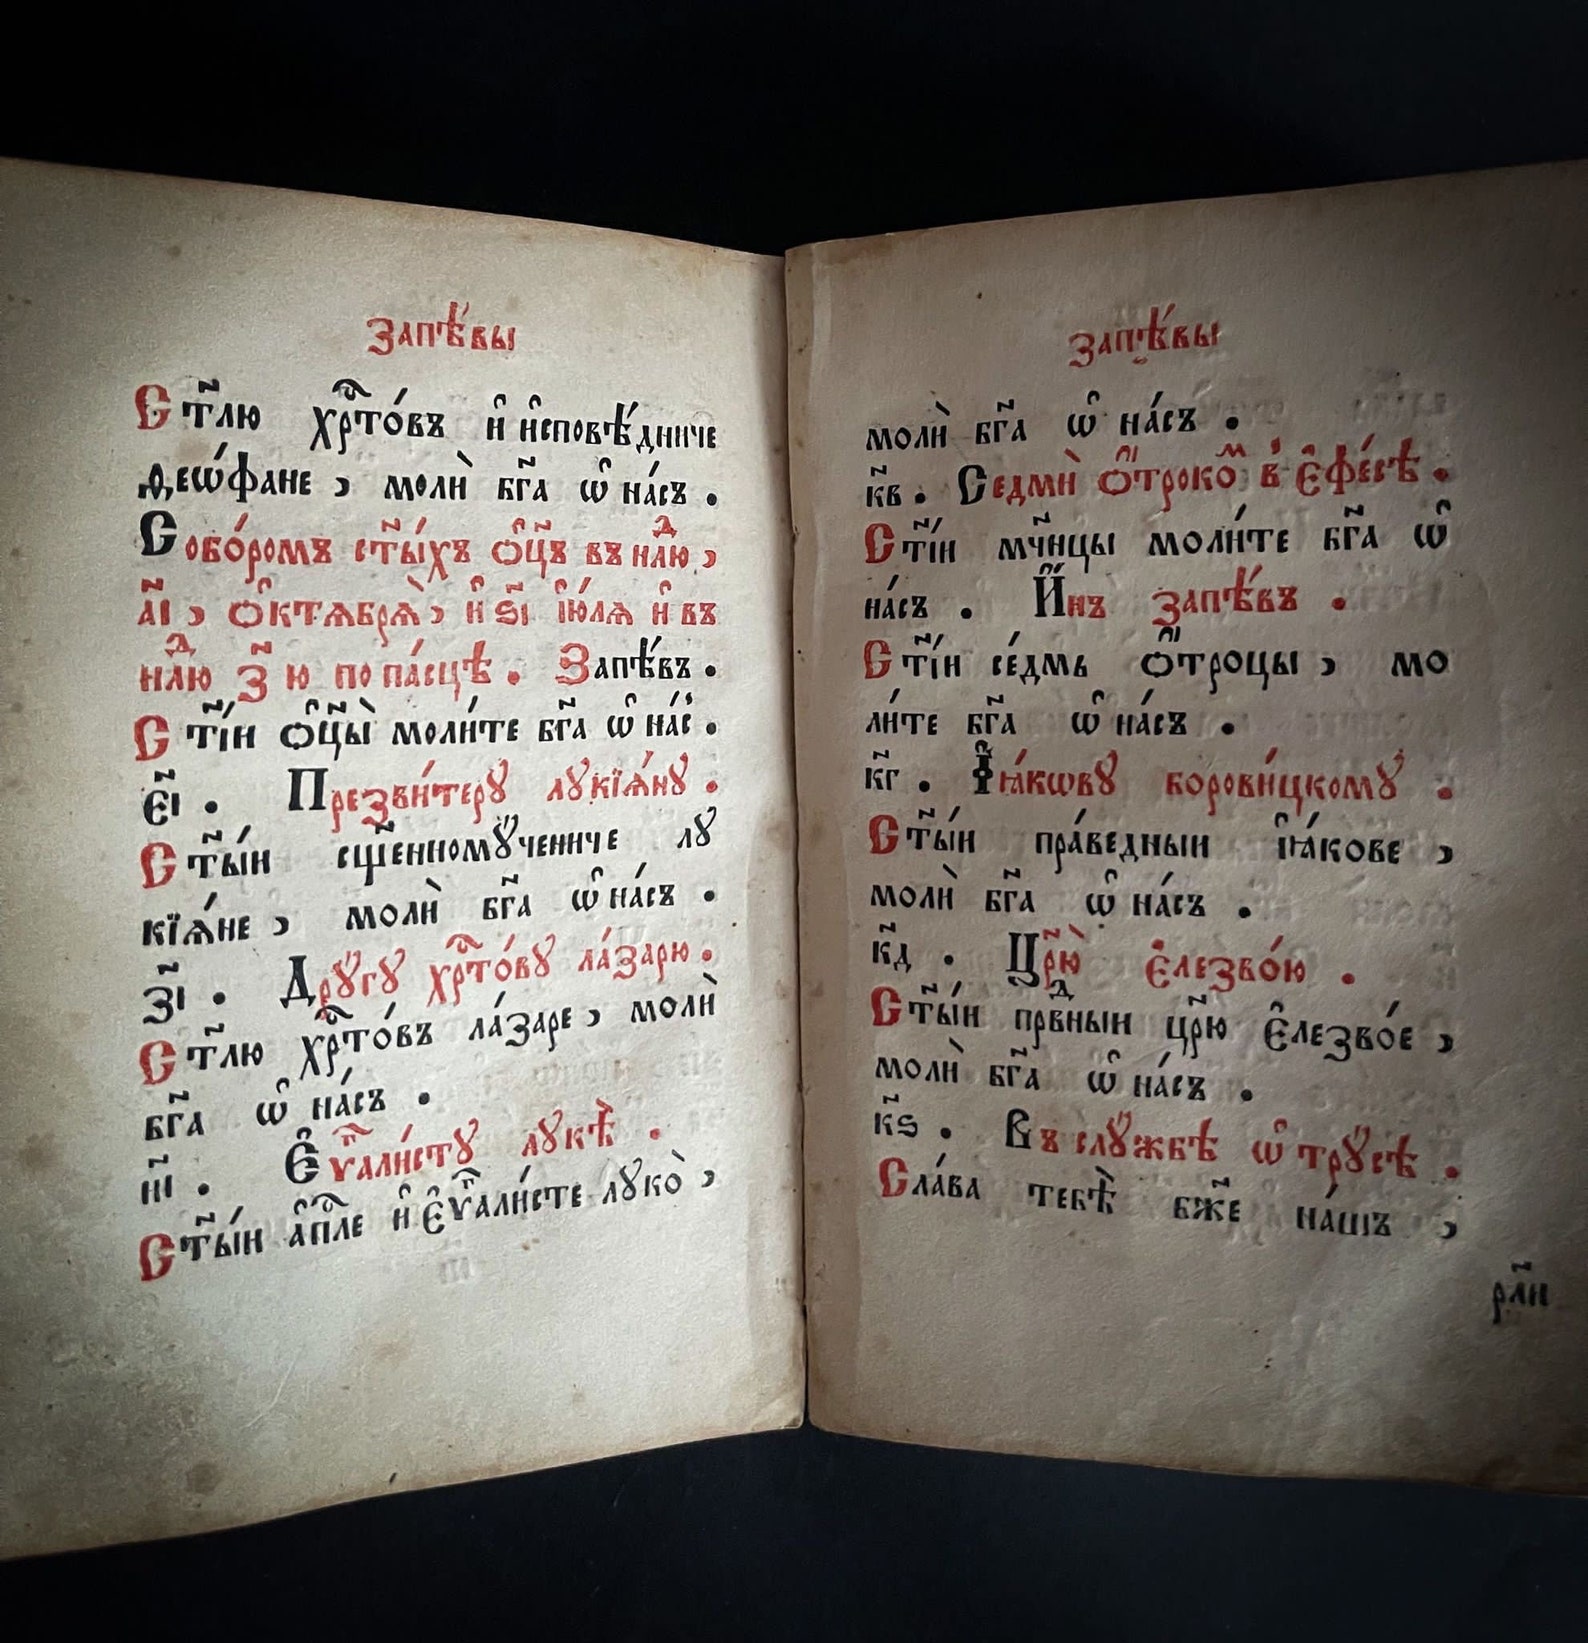 запѣ́вы
Ст҃лю хрⷭ҇то́въ и҆ и҆сповѣ́дниче
ѳеѡ́фане , молѝ бг҃а ѡ҆ на́съ .
Собо́ромъ ст҃ы́хъ ѻ҆ц҃ъ въ нлⷣю ,
а҃і , ѻ҆ктѧбрѧ̀ , и҆ ѕ҃і і҆ю́лѧ и҆ въ
нлⷣю з҃ ю по па́сцѣ . Запѣ́въ .
Ст҃і́и ѻ҆ц҃ы̀ моли́те бг҃а ѡ҆ на́с .
є҃і . Презви́теру лукїѧ́ну .
Ст҃ы́и сщ҃енномꙋ́чениче лꙋ
кїѧ́не , молѝ бг҃а ѡ҆ на́съ .
з҃і . Дрꙋ́гꙋ хрⷭ҇то́вꙋ ла́зарю .
Ст҃лю хрⷭ҇то́въ ла́заре , молѝ
бг҃а ѡ҆ на́съ .
и҃і . Є҆ѵⷢ҇али́стꙋ лꙋкѣ̀ .
Ст҃ы́и а҆пⷭ҇ле и҆ є҆ѵⷢ҇али́сте лꙋко̀ ,
запѣ́вы
молѝ бг҃а ѡ҆ на́съ .
к҃в . Седмѝ ѻ҆́трокоⷨ в̾ є҆фе́сѣ .
Ст҃і́и мч҃нцы моли́те бг҃а ѡ҆
на́съ . И҆́нъ запѣ́въ .
Ст҃і́и се́дмь ѻ҆́троцы , мо
ли́те бг҃а ѡ҆ на́съ .
к҃г . І҆ꙗ́кѡвꙋ боровицкомꙋ .
Ст҃ы́и пра́ведныи і҆ꙗ́кове ,
молѝ бг҃а ѡ҆ на́съ .
к҃д . Цр҃ю̀ є҆лезво́ю .
Ст҃ы́и првⷣныи цр҃ю є҆лезво́е ,
молѝ бг҃а ѡ҆ на́съ .
к҃ѕ . Въ слꙋ́жбѣ ѡ҆ трꙋ́сѣ .
Сла́ва тебѣ̀ бж҃е на́шъ ,
рл҃и